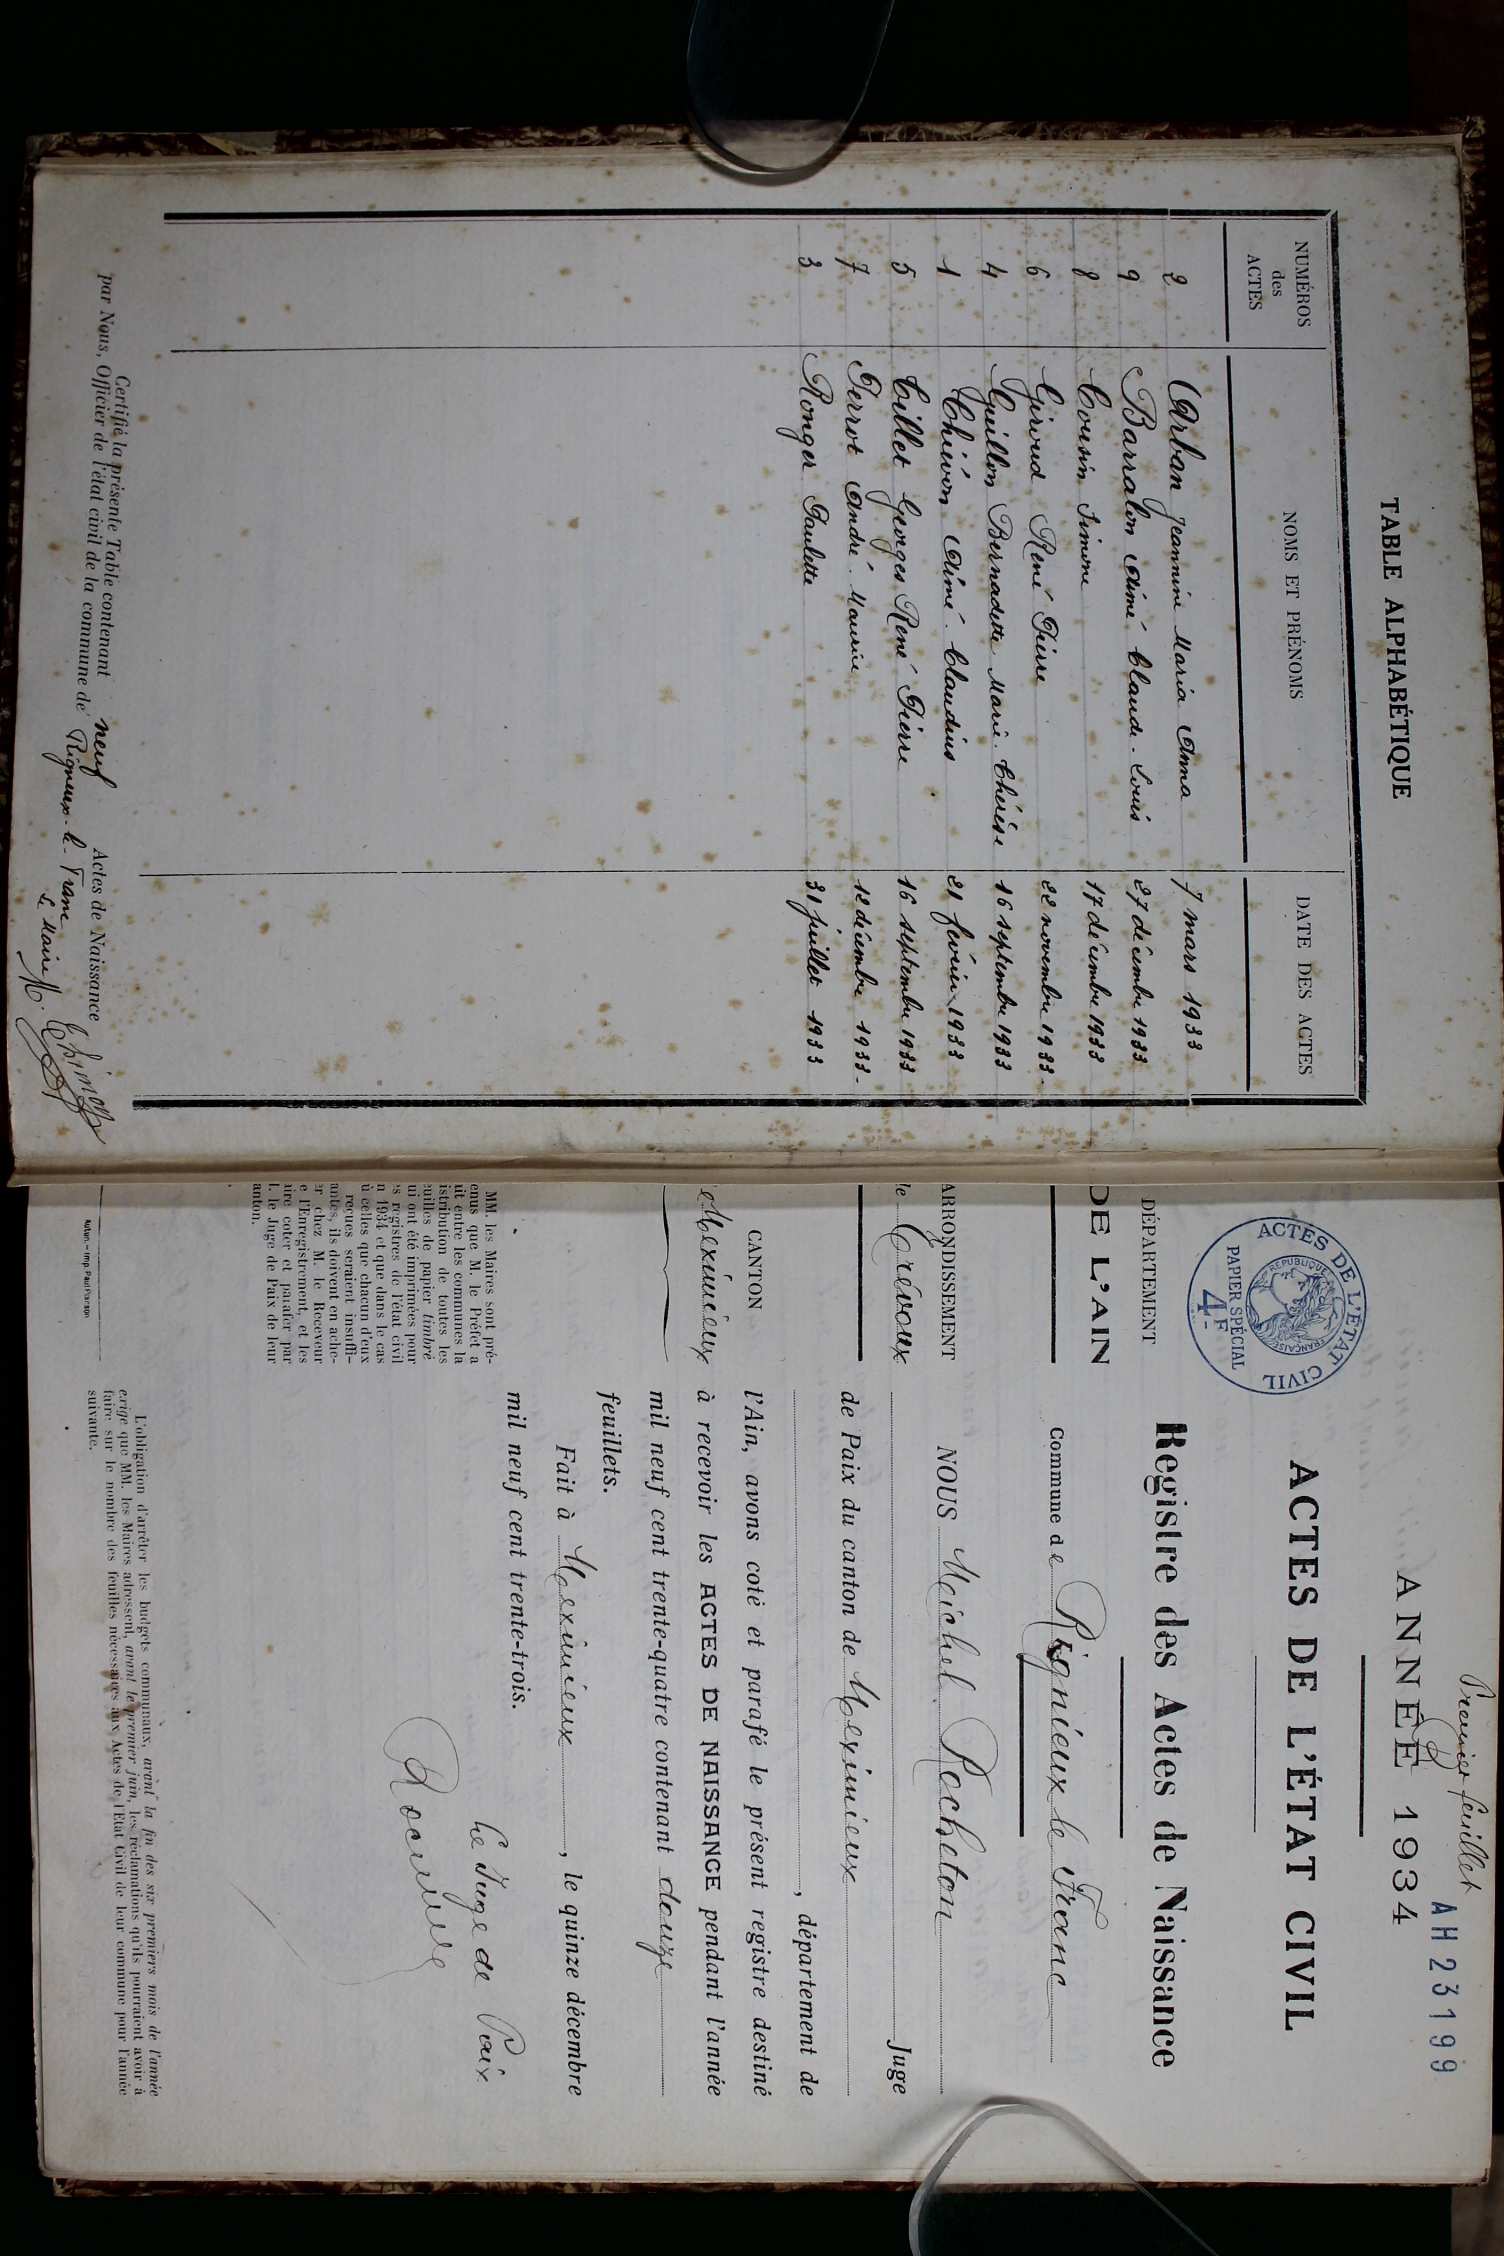 TABLE ALPHABÉTIQUE
NUMÉROS des ACTES
NOMS ET PRÉNOMS
DATE DES ACTES
2 Arban Jeannine Maria Anna 7 mars 1933
9 Barralon Aimé Claude-Louis 27 décembre 1933
8 Cousin Simone 17 décembre 1933
6 Giroud René Pierre 22 novembre 1933-
4 Guillon Bernadette Marie-Thérèse 16 septembre 1933
1 Thévon Aimé-Claudius 21 février 1933
5 Tillet Georges René Pierre 16 septembre 1933
7 Perrot André-Maurice 12 décembre 1933-
3 Ronger Paulette 31 juillet 1933
Certifié la présente Table contenant neuf Actes de Naissance
par Nous, Officier de l'état civil de la commune de Rigneux-le-Franc
Le Maire
Premier feuillet
AH 23199
ANNÉE 1934
ACTES DE L'ÉTAT CIVIL
PAPIER SPÉCIAL
4 F
RÉPUBLIQUE FRANÇAISE
ACTES DE L'ÉTAT CIVIL
Registre des Actes de Naissance
DÉPARTEMENT
DE L'AIN
Commune de Rignieux le Franc
ARRONDISSEMENT
de Trévoux
NOUS Michel Rocheton
Juge
de Paix du canton de Meximieux
, département de
CANTON
de Meximieux
l'Ain, avons coté et parafé le présent registre destiné
à recevoir les ACTES DE NAISSANCE pendant l'année
mil neuf cent trente-quatre contenant douze
feuillets.
Fait à Meximieux, le quinze décembre
mil neuf cent trente-trois.
Le Juge de Paix
MM. les Maires sont pré-
enus que M. le Préfet a
ait entre les communes la
istribution de toutes les
euilles de papier timbré
ui ont été imprimées pour
es registres de l'état civil
n 1934 et que dans le cas
ù celles que chacun d'eux
reçues seraient insuffi-
antes, ils doivent en ache-
er chez M. le Receveur
e l'Enregistrement, et les
aire coter et parafer par
l. le Juge de Paix de leur
anton.
L'obligation d'arrêter les budgets communaux, avant la fin des six premiers mois de l'année
exige que MM. les Maires adressent, avant le premier juin, les réclamations qu'ils pourraient avoir à
faire sur le nombre des feuilles nécessaires aux Actes de l'Etat Civil de leur commune pour l'année
suivante.